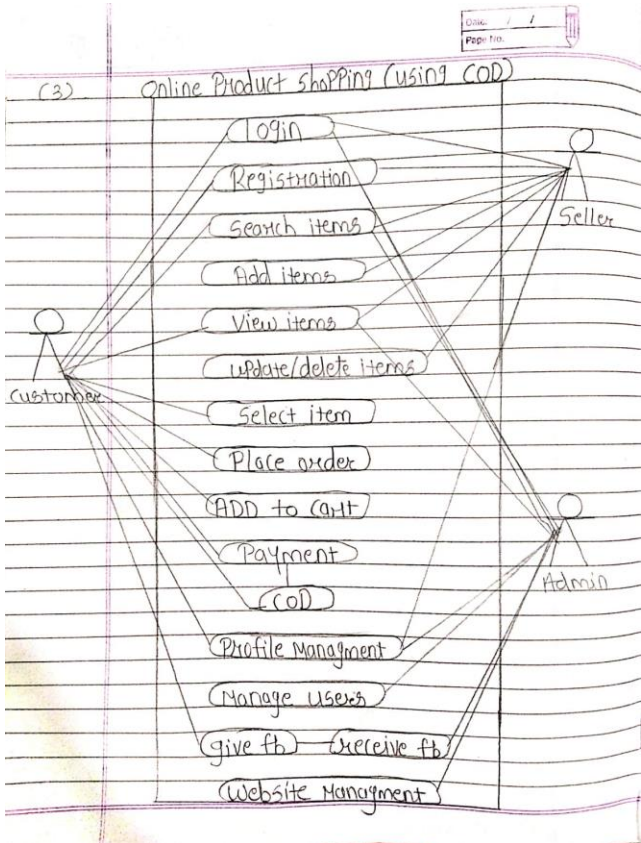 Date / /
Page No.
(3) Online Product shopping (using COD)
Login
Registration
Seller
Search items
Add items
View items
Customer
update/delete items
Select item
Place order
ADD to Cart
Payment
Admin
COD
Profile Managment
Manage users
give fb receive fb
Website Managment